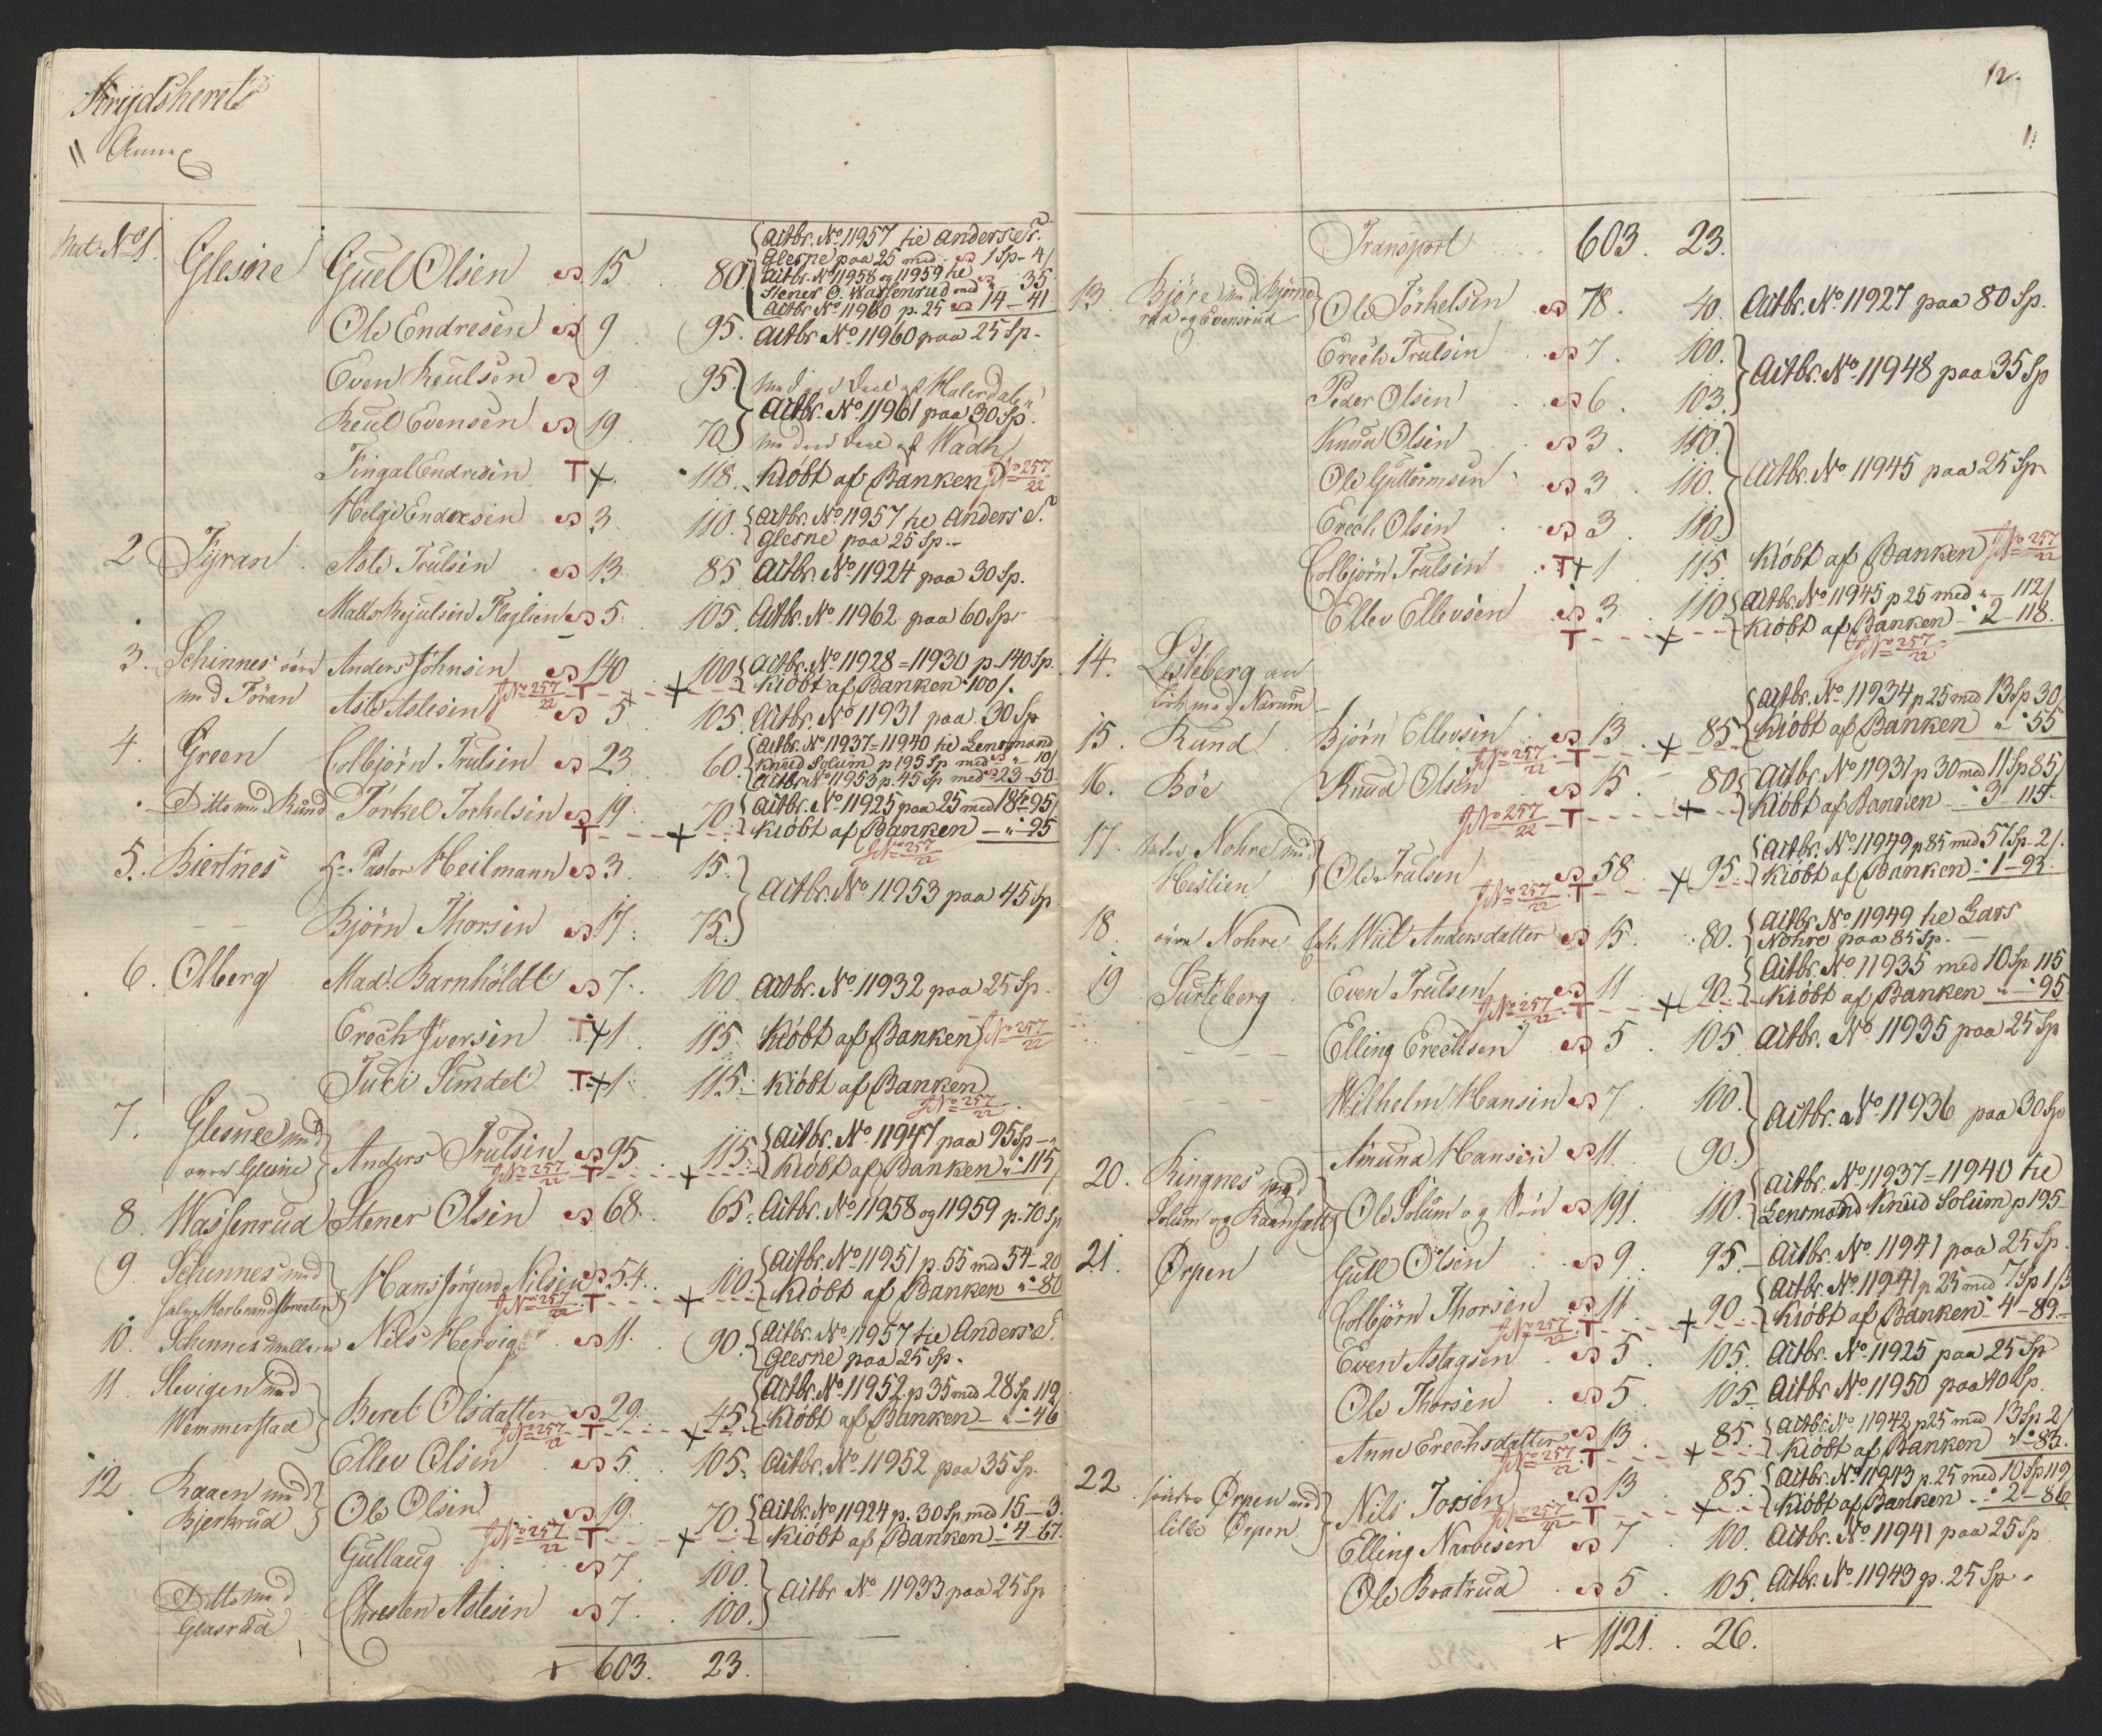 Krydsherets
Annex
Mat: No 1. Glesne Guel Olsen 15. 80. {Actbr. No 11957 tie Anders S.
Glesne paa 25 med 1 Sp - 4/
Actbr. No 11958 og 11959 tie
Stener O. Wassenrud med " - 35.
Actbr No 11960 p. 25 14 - 41
Ole Endresen 9 95. Actbr No 11960 paa 25 Sp.
Even Reulsen 9 95. Med
Actbr. No 11961 paa 30 Sp.
Reul Evensen 19 70
Fingal Endresen T + 118. Kiöbt af Banken No 257/22
Helge Endresen 3. 110. {Actbr. No 11957 tie Anders S.
Glesne paa 25 Sp.
2 Fyran Asle Trulsen 13. 85 Actbr. No 11924 paa 30 Sp.
Mats 5. 105. Actbr. No 11962 paa 60 Sp
3. Schinnes Anders Johnsen 140 100 {Actbr. No 11928 = 11930 p. 140 Sp.
med Föran No 257/22 T + Kiöbt af Banken 100/.
Asle Aslesen 5 105. Actbr. No 11931 paa 30 Sp
4. Green Colbjörn Trulsen 23 60. {Actbr. No 11937 = 11940 tie Lensmand
Knud Solum p 195 Sp med " - 10/
Actbr No 11953 p. 45 Sp med 23 - 50.
Ditto med Rund Torkel Torkelsen 19. 70. {Actbr. No 11925 paa 25 med 18 - 95/
T + Kiöbt af Banken - " - 95
No 257/22
5. Biertnes Hr Pastor Heilmann 3. 15.
Actbr. No 11953 paa 45 Sp
Björn Thorsen 17. 75.
6. Olberg Mad. Barnholdt 7. 100. Actbr. No 11932 paa 25 Sp.
Erech Iversen T + 1 115. Kiöbt af Banken No 257/22
Juri Simdel T + 1. 115. Kiöbt af Banken
No 257/22
7. Glesne med
öwre Glesne Anders Trulsen 95. 115. {Actbr. No 11947 paa 95 Sp - "
No 257/22 T + Kiöbt af Banken " - 115/
8. Wassenrud Stener Olsen 68. 65. Actbr. No 11958 og 11959 p. 70 Sp
9. Schinnes med
Hans Jörgen Nilsen 54. 100. {Actbr. No 11951 p. 55 med 54 - 20
No 257/22 T + Kiöbt af Banken " - 80
10. Schinnes mellem Nils Hervig 11. 90. {Actbr. No 11957 tie Anders S.
Glesne paa 25 Sp.
11. Slevigen med
Wemmerstad Beret Olsdatter 29. 45. {Actbr. No 11952 p 35 med 28 Sp 119
No 257/22 T + Kiöbt af Banken - " - 46
Ellev Olsen 5. 105. Actbr. No 11952 paa 35 Sp.
12. Raaen med
Bjerkrud Ole Olsen 19. 70. {Actbr. No 11924 p. 30 Sp med 15 - 3.
No 257/22 T + Kiöbt af Banken - 4 - 67.
Gullaug 7. 100.
Actbr No 11933 paa 25 Sp
Ditto med
Glasrud Christen Aslesen 7. 100.
+ 603. 23.
12.
Transport 603. 23.
13. Björe med Björne
rud og Evensrud Ole Törkelsen 78. 40. Actbr. No 11927 paa 80 Sp.
Erech Trulsen 7. 100.
Actbr. No 11948 paa 35 Sp
Peder Olsen 6. 103.
Knud Olsen 3. 110.
Ole Guttormsen 3. 110. Actbr. No 11945 paa 25 Sp
Erech Olsen 3. 110.
Colbjörn Trulsen T + 1 115. Kiöbt af Banken No 257/22
Ellev Ellevsen 3. 110 {Actbr. No 11945 p 25 med " - 112/
T + Kiöbt af Banken - 2 - 118.
No 257/22
14. Lesteberg
med Narum
15. Rund Björn Ellevsen 13. 85 {Actbr. No 11934 p. 25 med 13 Sp 30/
No 257/22 T + Kiöbt af Banken " - 55
16. Böe Knud Olsen 15. 80. {Actbr. No 11931 p 30 med 11 Sp 85/
No 257/22 T + Kiöbt af Banken - 3 - 115.
17. Nedre Nohre med
Heslien Ole Trulsen 58. 95. {Actbr. No 11949 p 85 med 57 Sp - 2/.
No 257/22 T + Kiöbt af Banken - 1 - 93.
18. öwre Nohre Enk. Wiil Andersdatter 15. 80. {Actbr. No 11949 tie Lars
Nohre paa 85 Sp.
19. Surteberg Even Trulsen 11. 90. {Actbr. No 11935 med 10 Sp 115
No 257/22 T + Kiöbt af Banken " - 95
Elling Erechsen 5. 105. Actbr. No 11935 paa 25 Sp
Wilhelm Hansen 7. 100.
Actbr. No 11936 paa 30 Sp
Amund Hansen 11. 90.
20. Ringnes med
Solum og Ole Solum og Sön 191. 110. {Actbr. No 11937 = 11940 tie
Lensmand Knud Solum p 195
21. Ørpen Gull Olsen 9. 95. Actbr. No 11941 paa 25 Sp.
Colbjörn Thorsen 11. 90. {Actbr. No 11941 p 25 med 7 Sp 1/
No 257/22 T + Kiöbt af Banken - 4 - 89.
Even Aslagsen 5. 105. Actbr. No 11925 paa 25 Sp
Ole Thorsen 5. 105. Actbr. No 11950 paa 40 Sp.
Anne Erechsdatter 13. 85. {Actbr. No 11942 p 25 med 13 Sp 2/
No 257/22 T + Kiöbt af Banken " - 83.
22. söndre Ørpen med
lille Ørpen Nils Torsen 13 85. {Actbr. No 11943 p. 25 med 10 Sp 119/
No 257/22 T + Kiöbt af Banken - 2 - 86
Elling Narvesen 7. 100. Actbr. No 11941 paa 25 Sp
Ole Bratrud 5 105. Actbr. No 11943 p. 25 Sp.
+ 1121. 26.